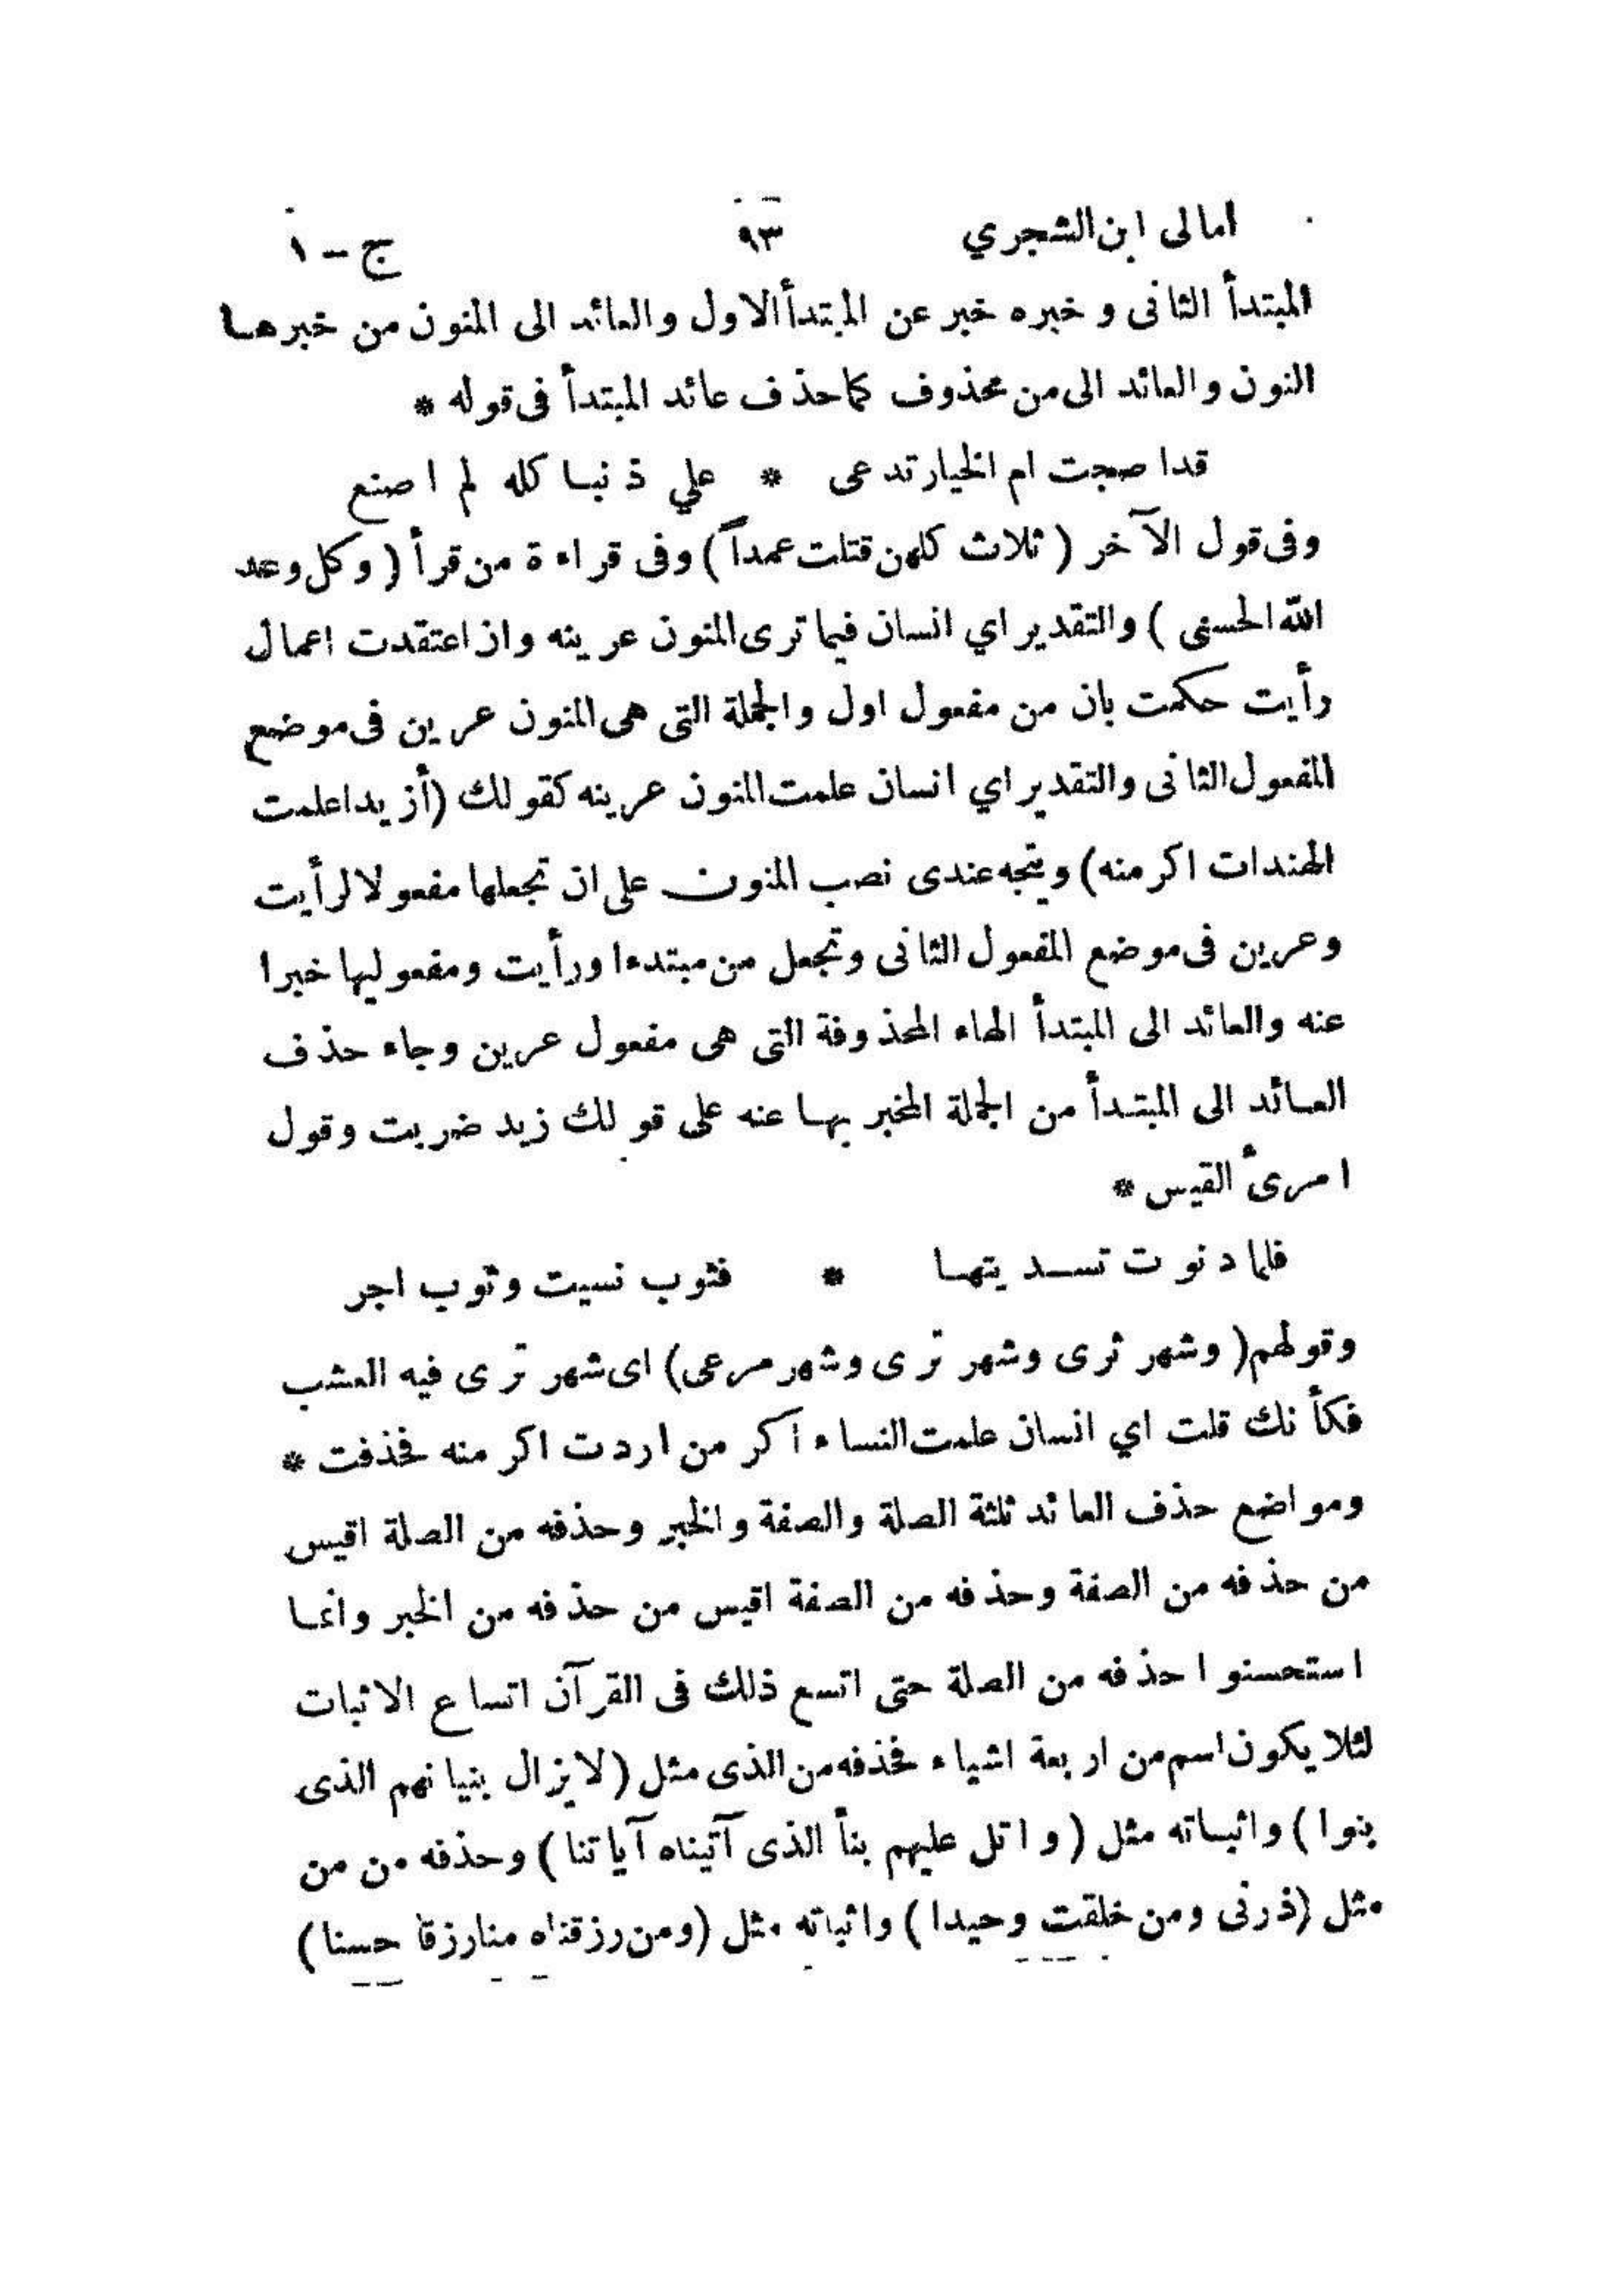 امالى ابن الشجري ٩٣ ج - ١
المبتدأ الثانى و خبره خبر عن المبتدأ الاول والعائد الى المنون من خبرها
النون والعائد الى من محذوف كما حذف عائد المبتدأ فى قوله *
قد اصبحت ام الخيار تدعى * علي ذنبا كله لم اصنع
وفى قول الآخر ( ثلاث كلهن قتلت عمداً ) وفى قراءة من قرأ ( وكل وعد
الله الحسنى ) والتقدير اي انسان فيما ترى المنون عرينه وان اعتقدت اعمال
رأيت حكمت بان من مفعول اول والجملة التى هى المنون عرين فى موضع
المفعول الثانى والتقدير اي انسان علمت المنون عرينه كقولك (أزيدا علمت
الهندات اكرمنه) ويتجه عندى نصب المنون على ان تجعلها مفعولا لرأيت
وعرين فى موضع المفعول الثانى وتجعل من مبتدءا ورأيت ومفعوليها خبرا
عنه والعائد الى المبتدأ الهاء المحذوفة التى هى مفعول عرين وجاء حذف
العائد الى المبتدأ من الجملة المخبر بها عنه على قولك زيد ضربت وقول
امرئ القيس *
فلما دنوت تسديتها * فثوب نسيت وثوب اجر
وقولهم( وشهر ثرى وشهر ترى وشهر مرعى) اى شهر ترى فيه العشب
فكأنك قلت اي انسان علمت النساء اكرمن اردت اكرمنه فحذفت *
ومواضع حذف العائد ثلثة الصلة والصفة والخبر وحذفه من الصلة اقيس
من حذفه من الصفة وحذفه من الصفة اقيس من حذفه من الخبر وانما
استحسنوا حذفه من الصلة حتى اتسع ذلك فى القرآن اتساع الاثبات
لئلا يكون اسم من اربعة اشياء فحذفه من الذى مثل (لا يزال بنيانهم الذى
بنوا ) واثباته مثل ( واتل عليهم بنأ الذى آتيناه آياتنا ) وحذفه من من
مثل (ذرنى ومن خلقت وحيدا ) واثباته مثل (ومن رزقناه منا رزقا حسنا )